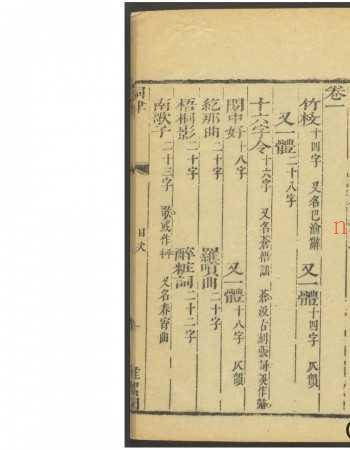 卷一
竹枝十四字 又名巴渝辭 又一體十四字 仄韻
又一體二十八字
十六字令十六字 又名蒼梧謠
閒中好十八字 又一體十八字 仄韻
紇那曲二十字 羅嗊曲二十字
梧桐影二十字 醉粧詞二十二字
南歌子二十三字 歌或作柯 又名春宵曲
詞律
目次